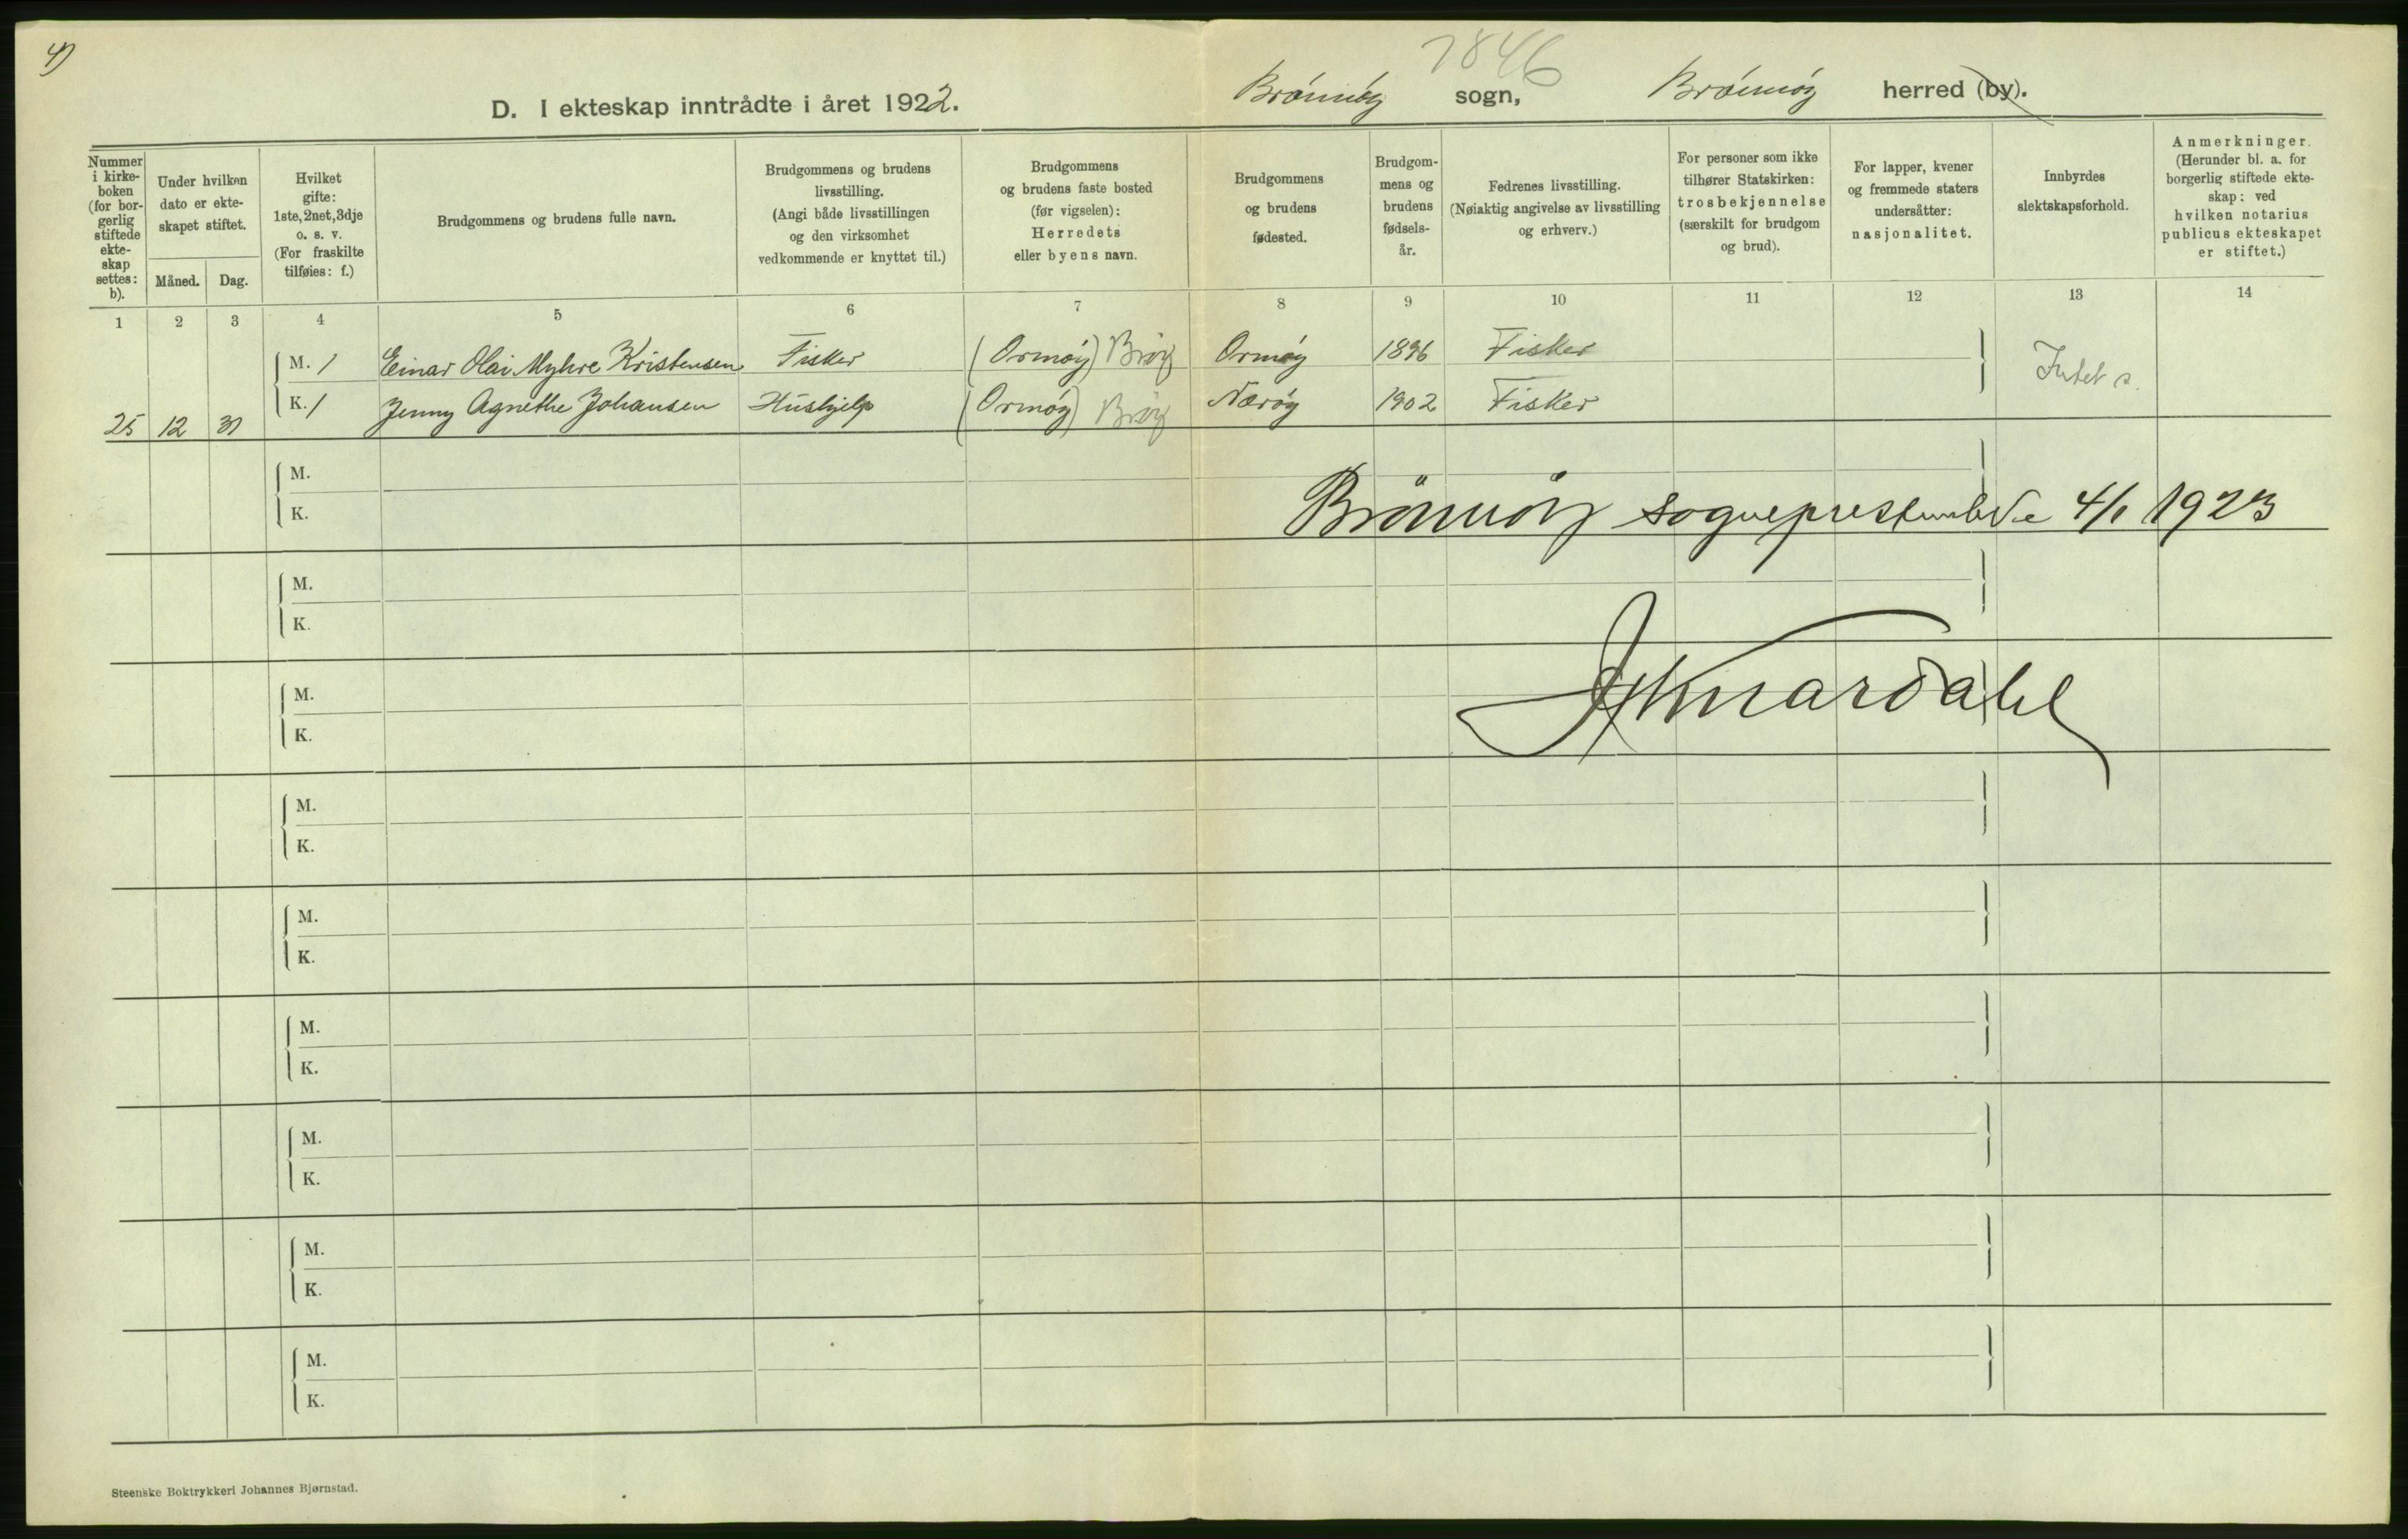 4)
7846
D. I ekteskap inntrådte i året 1922.
Brönnöy sogn, Brönnöy herred (by).
Nummer i kirkeboken (for borgerlig stiftede ekteskap settes: b).
Under hvilken dato er ekteskapet stiftet.
Måned. Dag.
Hvilket gifte: 1ste, 2net, 3dje o. s. v. (For fraskilte tilføies: f.)
Brudgommens og brudens fulle navn.
Brudgommens og brudens livsstilling. (Angi både livsstillingen og den virksomhet vedkommende er knyttet til.)
Brudgommens og brudens faste bosted (før vigselen): Herredets eller byens navn.
Brudgommens og brudens fødested.
Brudgommens og brudens fødselsår.
Fedrenes livsstilling. (Nøiaktig angivelse av livsstilling og erhverv.)
For personer som ikke tilhører Statskirken: trosbekjennelse (særskilt for brudgom og brud).
For lapper, kvener og fremmede staters undersåtter: nasjonalitet.
Innbyrdes slektskapsforhold.
Anmerkninger. (Herunder bl. a. for borgerlig stiftede ekteskap: ved hvilken notarius publicus ekteskapet er stiftet.)
1 2 3 4 5 6 7 8 9 10 11 12 13 14
M. 1 Einar Olai Myhre Kristensen Fisker (Ormöy) Bröy Ormöy 1896 Fisker Intet s.
25 12 31 K. 1 Jenny Agnethe Johansen Hushjelp (Ormöy) Bröy Næröy 1902 Fisker
M.
K.
Brönnöy sogneprestembede 4/1 1923
M.
K.
M.
K.
M.
K.
M.
K.
M.
K.
M.
K.
M.
K.
M.
K.
Steenske Boktrykkeri Johannes Bjørnstad.